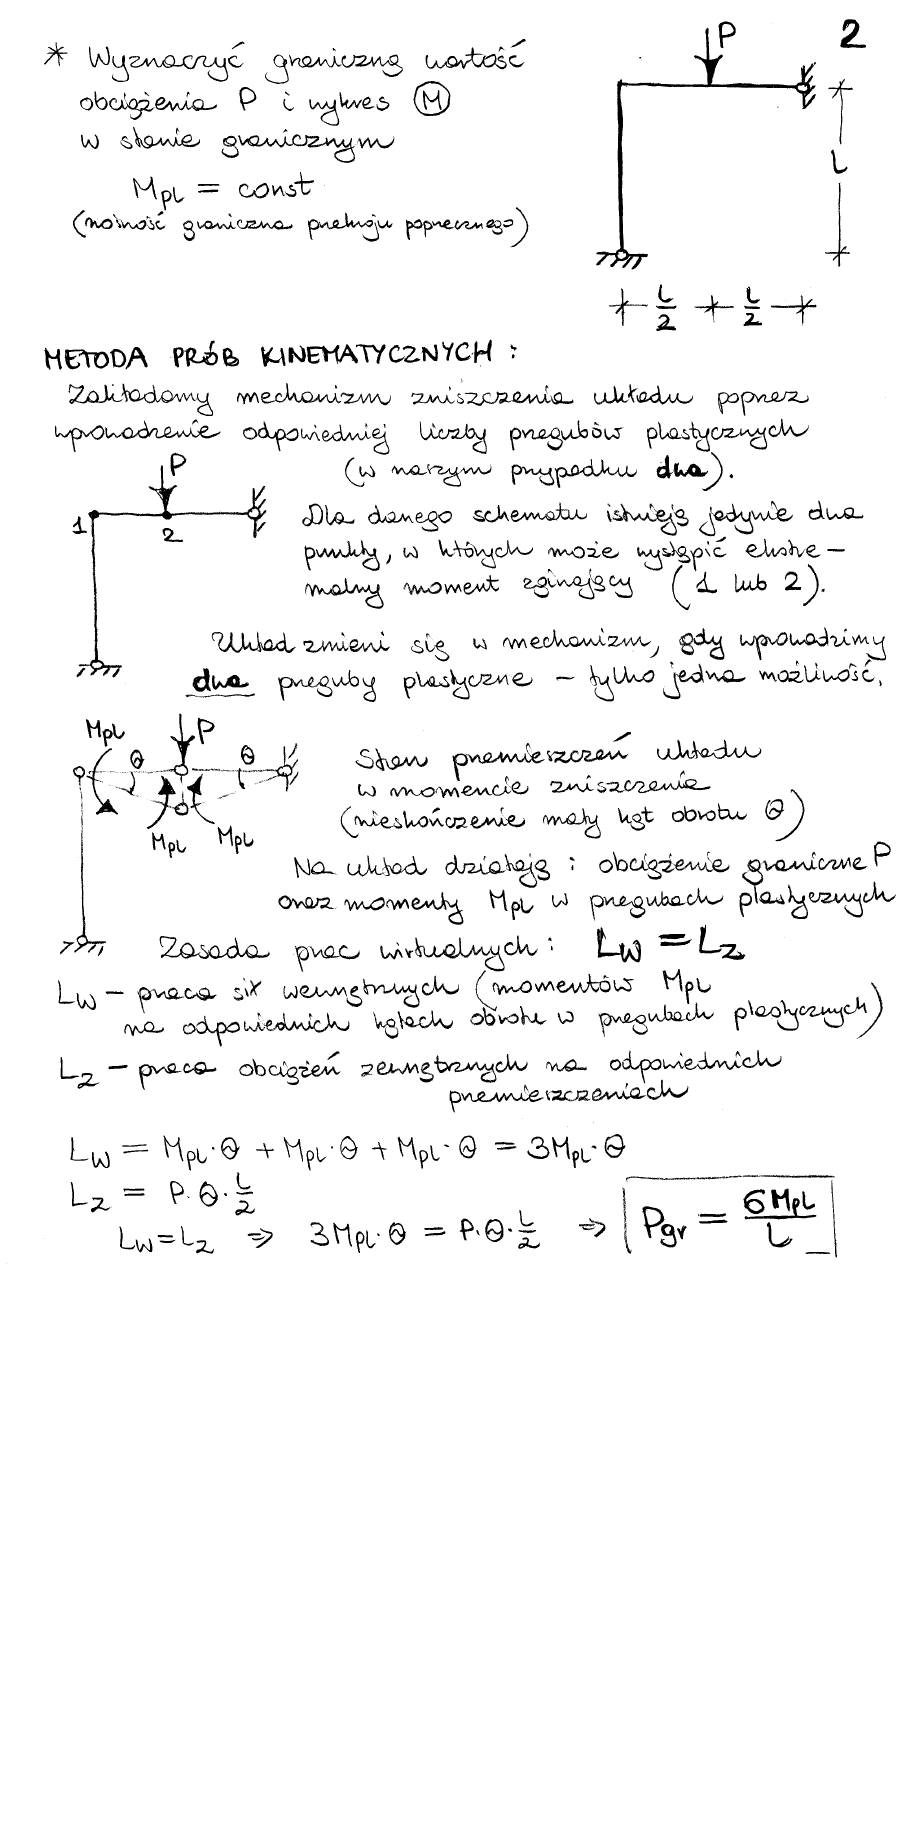 2
* Wyznaczyć graniczną wartość
obciążenia P i wykres M
w stanie granicznym
Mpl = const
(nośność graniczna przekroju poprzecznego)
P
L
L/2 L/2
METODA PRÓB KINEMATYCZNYCH :
Zakładamy mechanizm zniszczenia układu poprzez
wprowadzenie odpowiedniej liczby przegubów plastycznych
(w naszym przypadku dwa).
P
1
2
Dla danego schematu istnieją jedynie dwa
punkty, w których może wystąpić ekstre-
malny moment zginający (1 lub 2).
Układ zmieni się w mechanizm, gdy wprowadzimy
dwa przeguby plastyczne – tylko jedna możliwość.
Mpl P
Θ Θ
Mpl Mpl
Stan przemieszczeń układu
w momencie zniszczenia
(nieskończenie mały kąt obrotu Θ)
Na układ działają : obciążenie graniczne P
oraz momenty Mpl w przegubach plastycznych
Zasada prac wirtualnych : Lw = Lz
Lw – praca sił wewnętrznych (momentów Mpl
na odpowiednich kątach obrotu w przegubach plastycznych)
Lz – praca obciążeń zewnętrznych na odpowiednich
przemieszczeniach
Lw = Mpl·Θ + Mpl·Θ + Mpl·Θ = 3Mpl·Θ
Lz = P·Θ·L/2
Lw=Lz ⇒ 3Mpl·Θ = P·Θ·L/2 ⇒ Pgr = 6Mpl/L